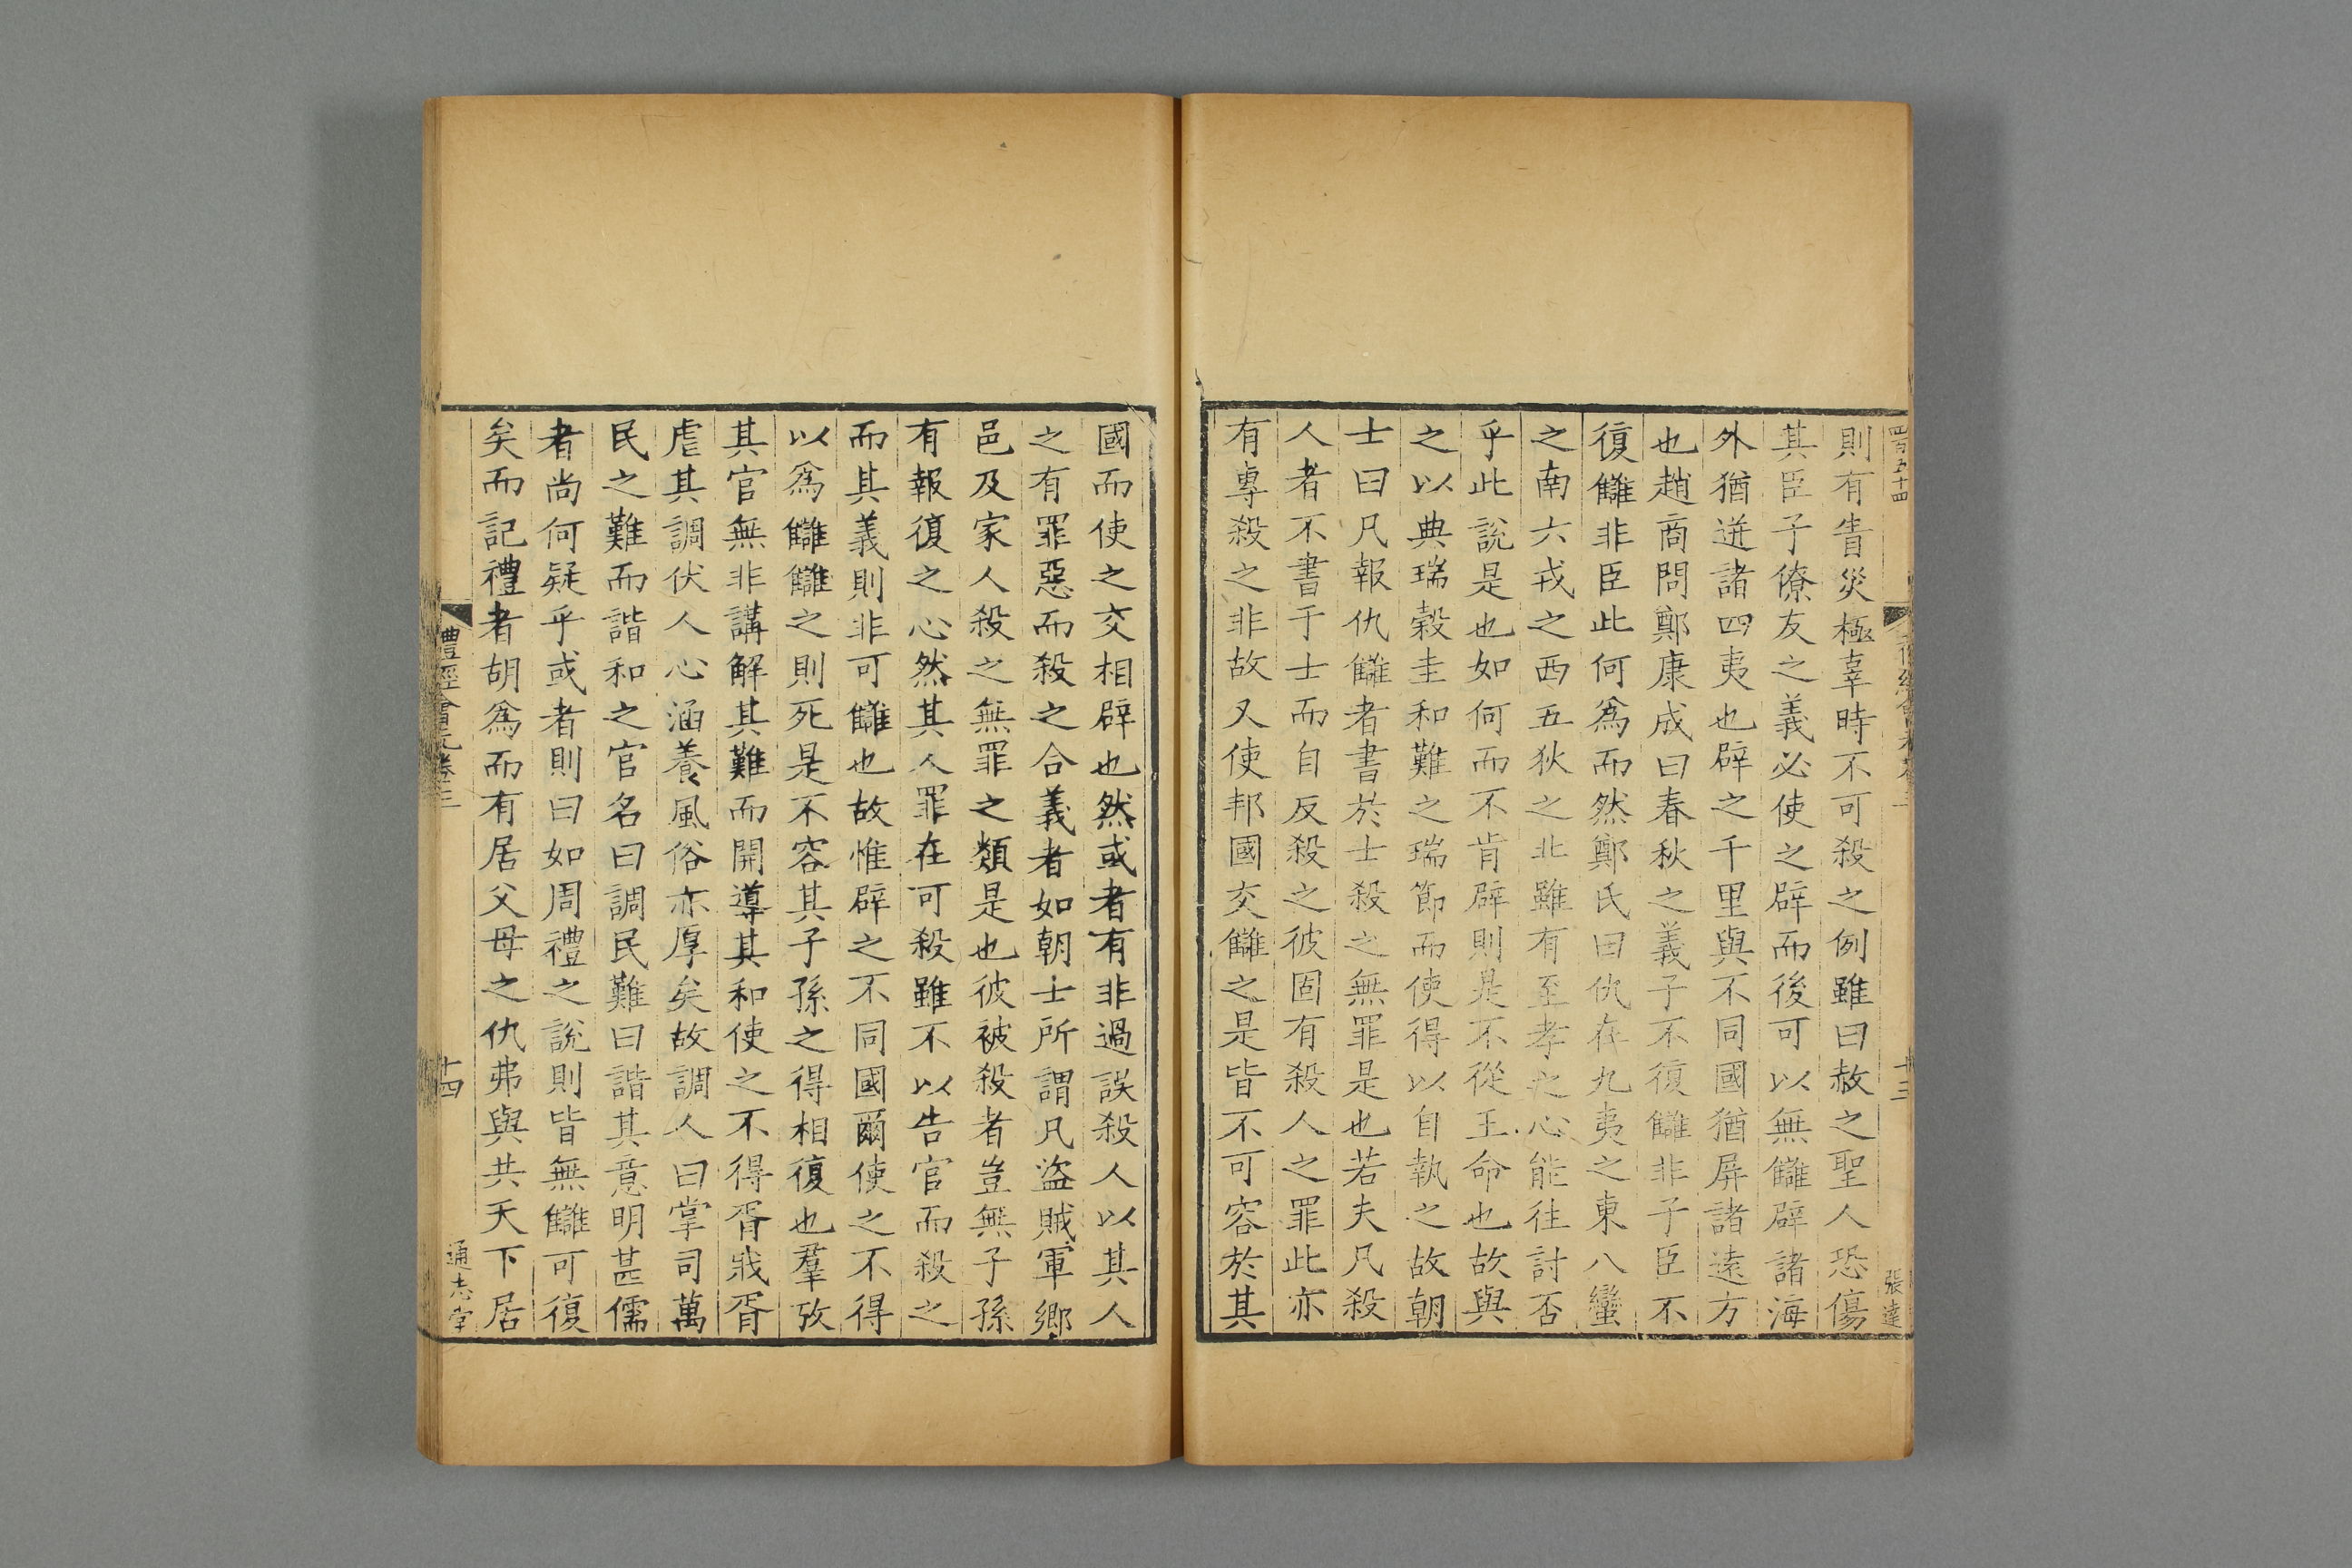 四百五十四
十三
張達
則有眚災極辜時不可殺之例雖曰赦之聖人恐傷
其臣子僚友之義必使之辟而後可以無讎辟諸海
外猶迸諸四夷也辟之千里與不同國猶屏諸遠方
也趙商問鄭康成曰春秋之義子不復讎非子臣不
復讎非臣此何爲而然鄭氏曰仇在九夷之東八蠻
之南六戎之西五狄之北雖有至孝之心能往討否
乎此說是也如何而不肯辟則是不從王命也故與
之以典瑞穀圭和難之瑞節而使得以自執之故朝
士曰凡報仇讎者書於士殺之無罪是也若夫凡殺
人者不書于士而自反殺之彼固有殺人之罪此亦
有專殺之非故又使邦國交讎之是皆不可容於其
國而使之交相辟也然或者有非過誤殺人以其人
之有罪惡而殺之合義者如朝士所謂凡盜賊軍鄉
邑及家人殺之無罪之類是也彼被殺者豈無子孫
有報復之心然其人罪在可殺雖不以告官而殺之
而其義則非可讎也故惟辟之不同國爾使之不得
以爲讎讎之則死是不容其子孫之得相復也羣攷
其官無非講解其難而開導其和使之不得胥戕胥
虐其調伏人心涵養風俗亦厚矣故調人曰掌司萬
民之難而諧和之官名曰調民難曰諧其意明甚儒
者尚何疑乎或者則曰如周禮之說則皆無讎可復
矣而記禮者胡爲而有居父母之仇弗與共天下居
禮經會元卷三
十四
通志堂